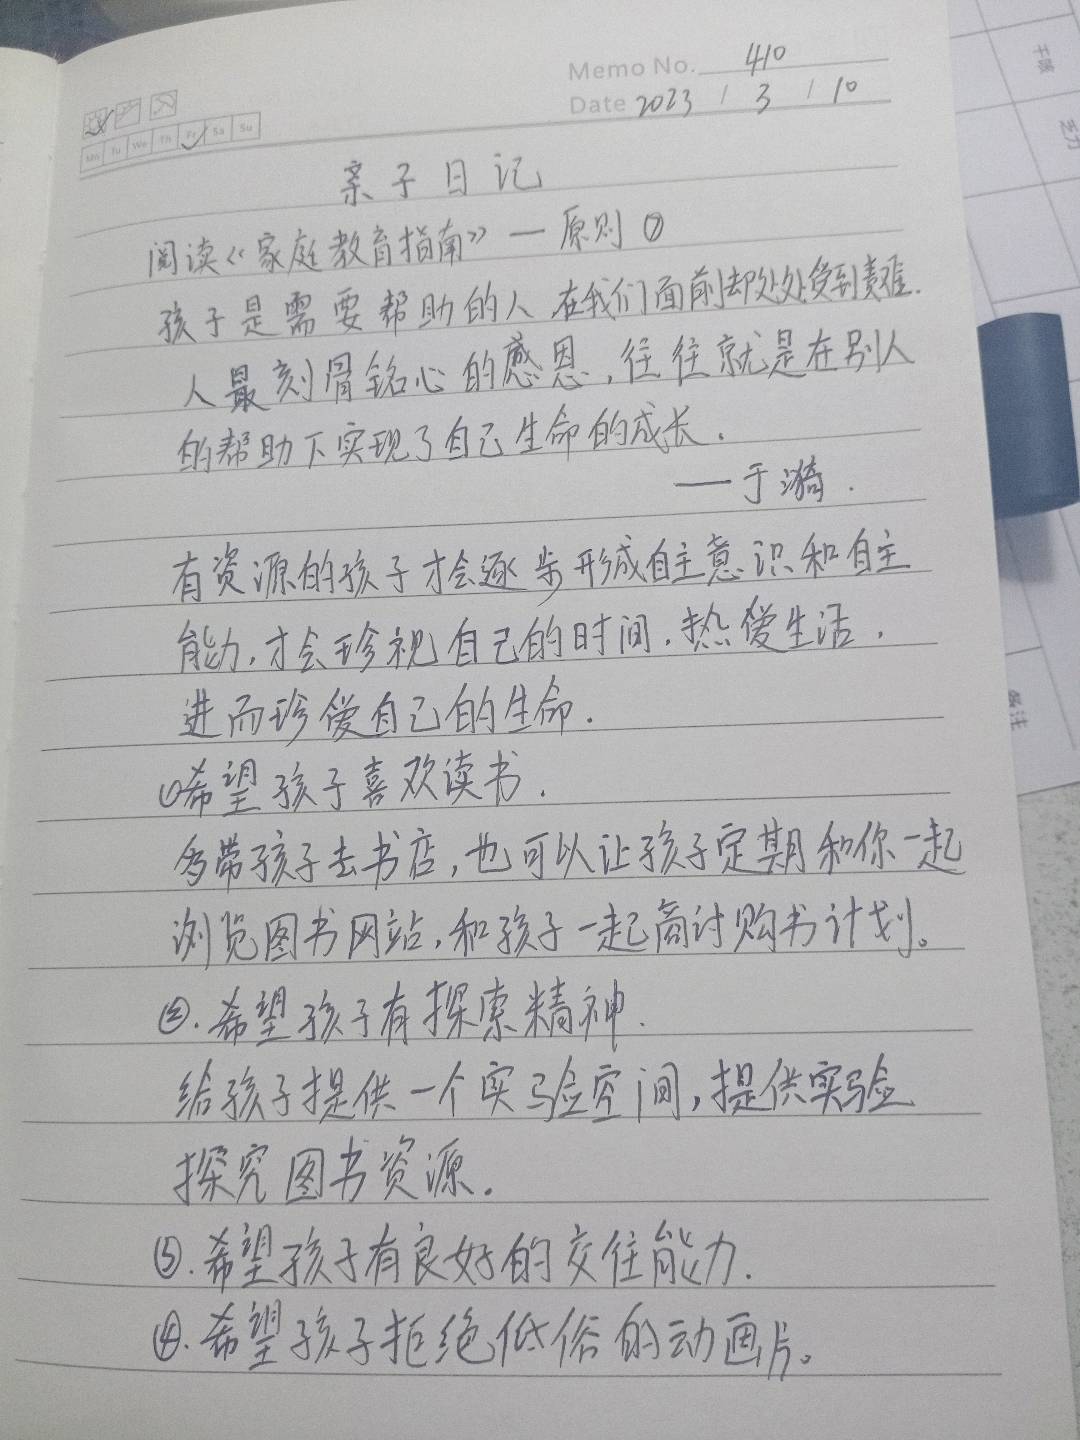 Memo No. 410
Date 2023 / 3 / 10
Mo Tu We Th Fr Sa Su
亲子日记
阅读《家庭教育指南》—原则⑦
孩子是需要帮助的人.在我们面前却处处受到责难.
人最刻骨铭心的感恩,往往就是在别人
的帮助下实现了自己生命的成长.
——于漪.
有资源的孩子才会逐步形成自主意识和自主
能力,才会珍视自己的时间.热爱生活,
进而珍爱自己的生命.
①希望孩子喜欢读书.
多带孩子去书店,也可以让孩子定期和你一起
浏览图书网站,和孩子一起商讨购书计划。
②.希望孩子有探索精神.
给孩子提供一个实验空间,提供实验
探究图书资源.
③.希望孩子有良好的交往能力.
④.希望孩子拒绝低俗的动画片。
备注